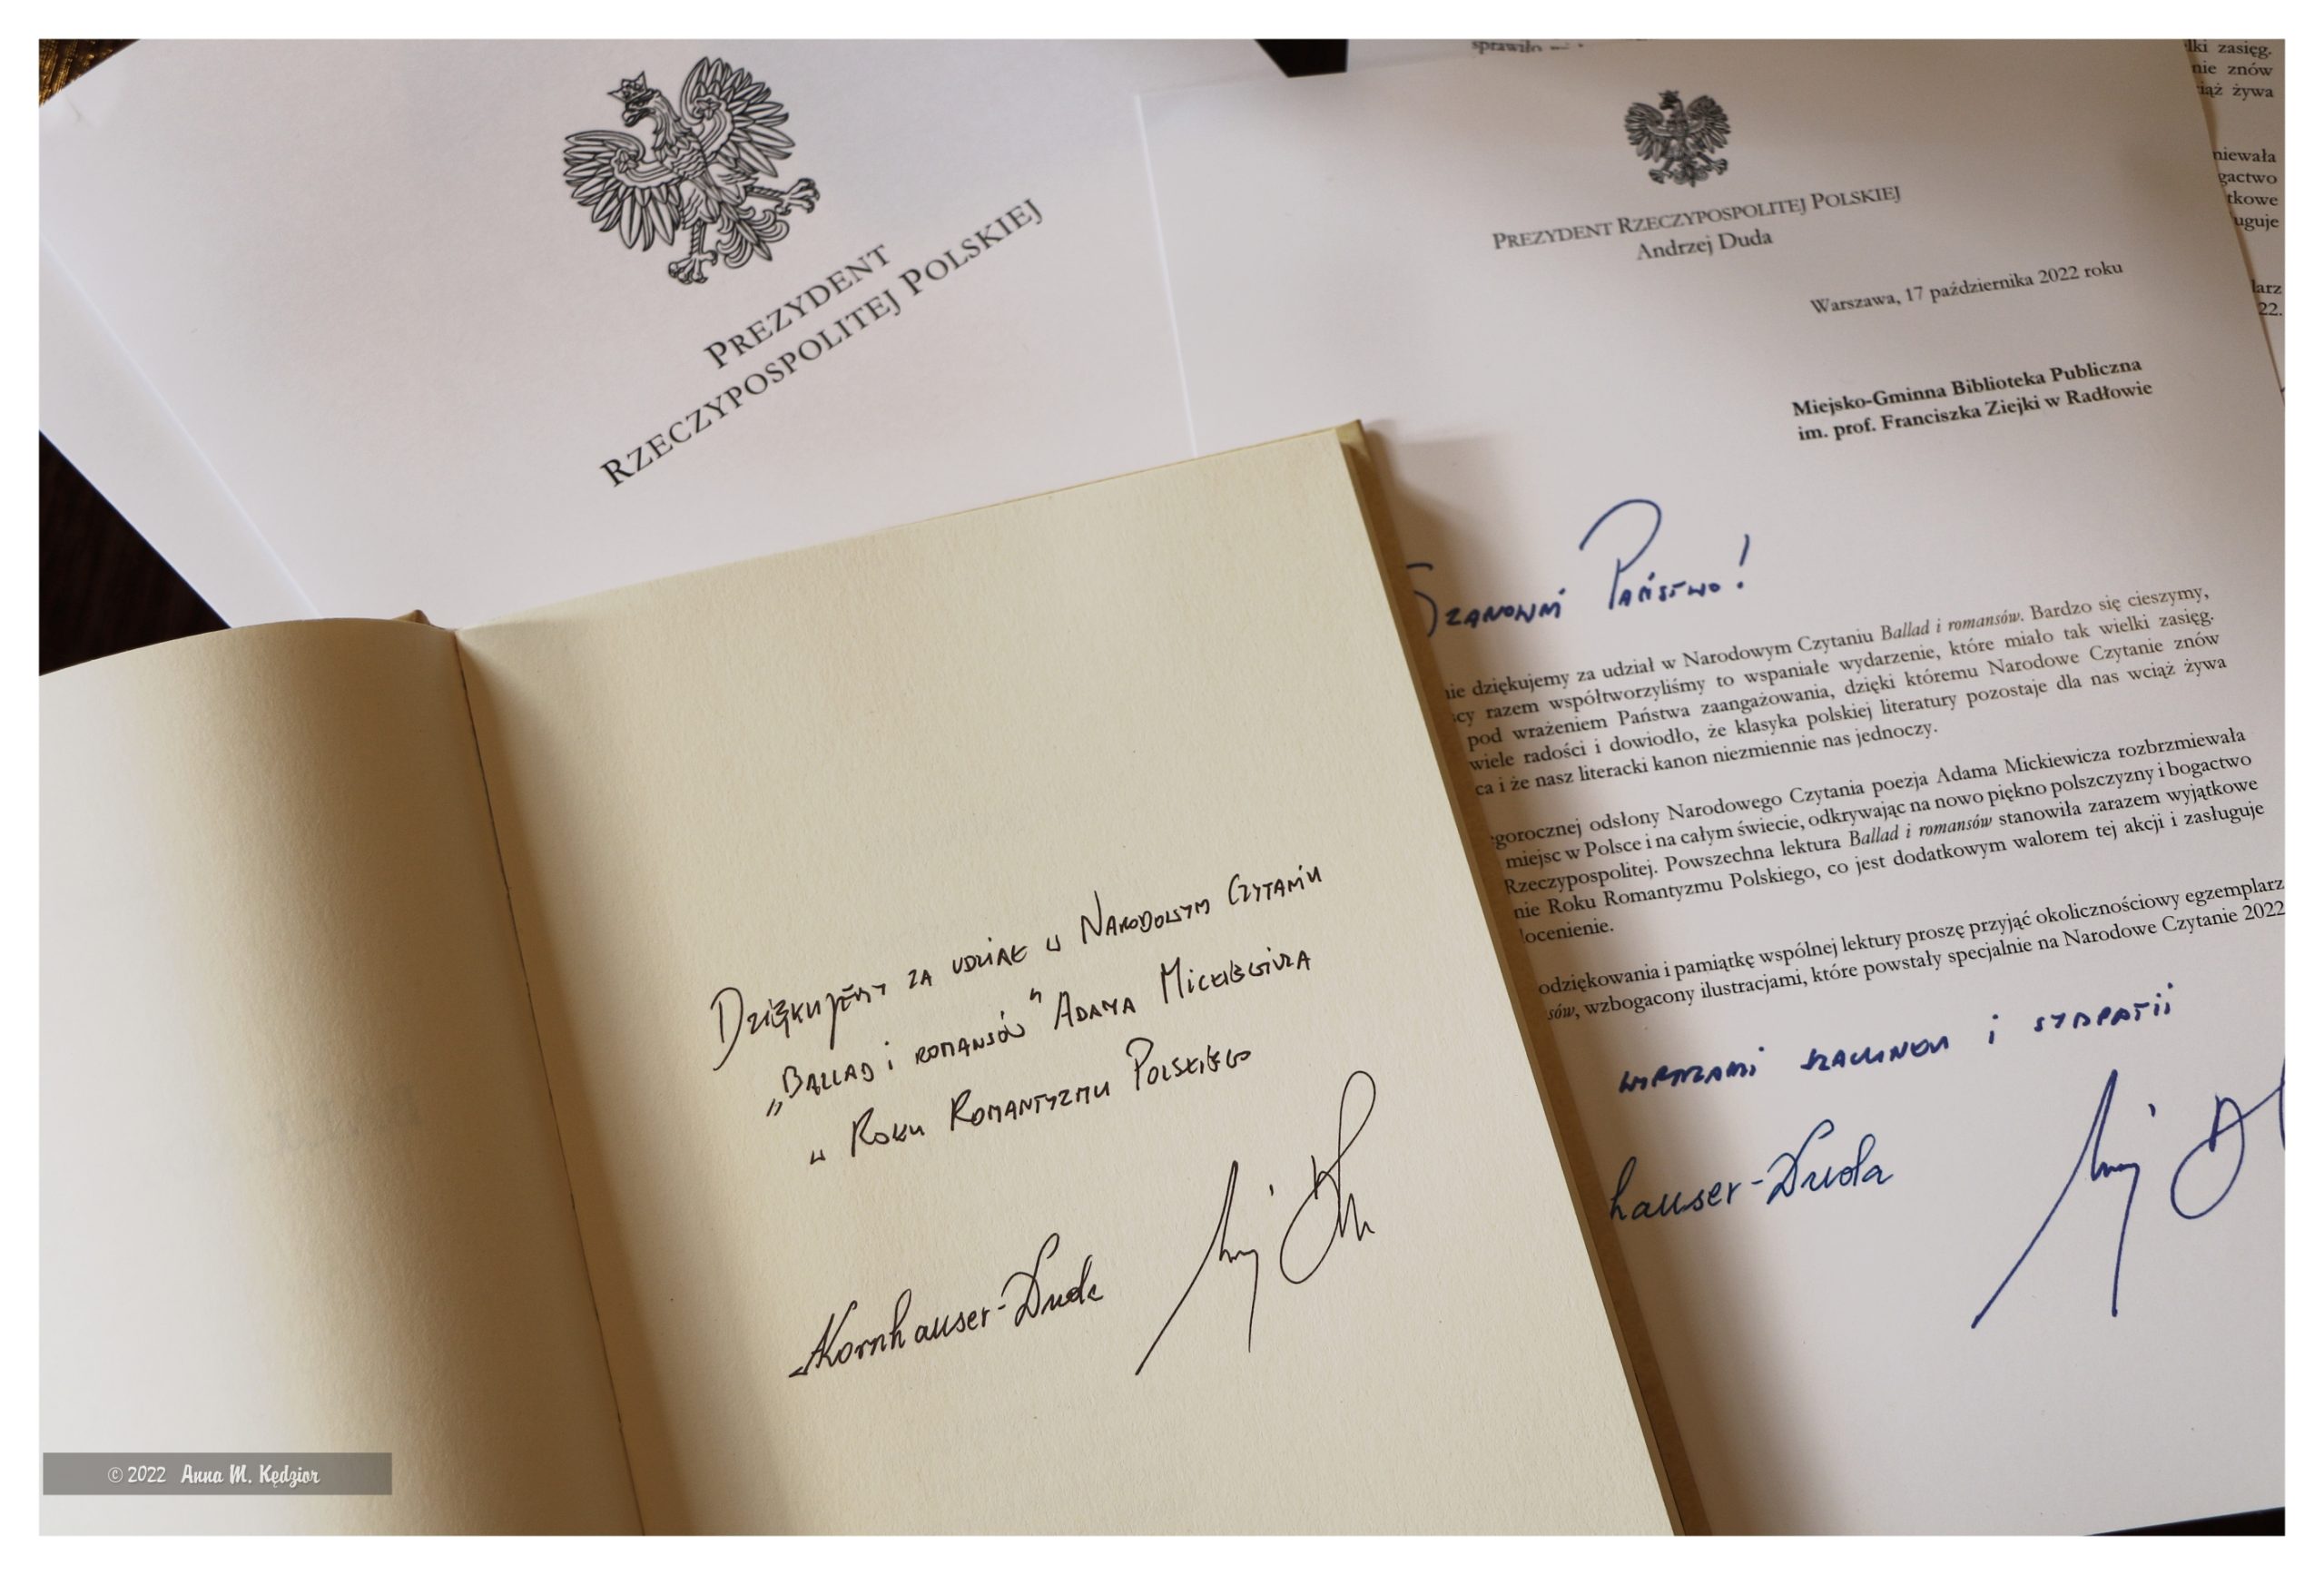 PREZYDENT
RZECZYPOSPOLITEJ POLSKIEJ
sprawiło
PREZYDENT RZECZYPOSPOLITEJ POLSKIEJ
Andrzej Duda
Warszawa, 17 października 2022 roku
Miejsko-Gminna Biblioteka Publiczna
im. prof. Franciszka Ziejki w Radłowie
Szanowni Państwo!
nie dziękujemy za udział w Narodowym Czytaniu Ballad i romansów. Bardzo się cieszymy,
cy razem współtworzyliśmy to wspaniałe wydarzenie, które miało tak wielki zasięg.
pod wrażeniem Państwa zaangażowania, dzięki któremu Narodowe Czytanie znów
wiele radości i dowiodło, że klasyka polskiej literatury pozostaje dla nas wciąż żywa
ca i że nasz literacki kanon niezmiennie nas jednoczy.
gorocznej odsłony Narodowego Czytania poezja Adama Mickiewicza rozbrzmiewała
miejsc w Polsce i na całym świecie, odkrywając na nowo piękno polszczyzny i bogactwo
Rzeczypospolitej. Powszechna lektura Ballad i romansów stanowiła zarazem wyjątkowe
nie Roku Romantyzmu Polskiego, co jest dodatkowym walorem tej akcji i zasługuje
ocenienie.
odziękowania i pamiątkę wspólnej lektury proszę przyjąć okolicznościowy egzemplarz
sów, wzbogacony ilustracjami, które powstały specjalnie na Narodowe Czytanie 2022
wyrazami szacunku i sympatii
hauser-Duda
lki zasięg.
nie znów
iąż żywa
niewała
gactwo
tkowe
uguje
larz
22.
Dziękujemy za udział w Narodowym Czytaniu
„Ballad i romansów" Adama Mickiewicza
w Roku Romantyzmu Polskiego
Kornhauser-Duda
© 2022 Anna M. Kędzior